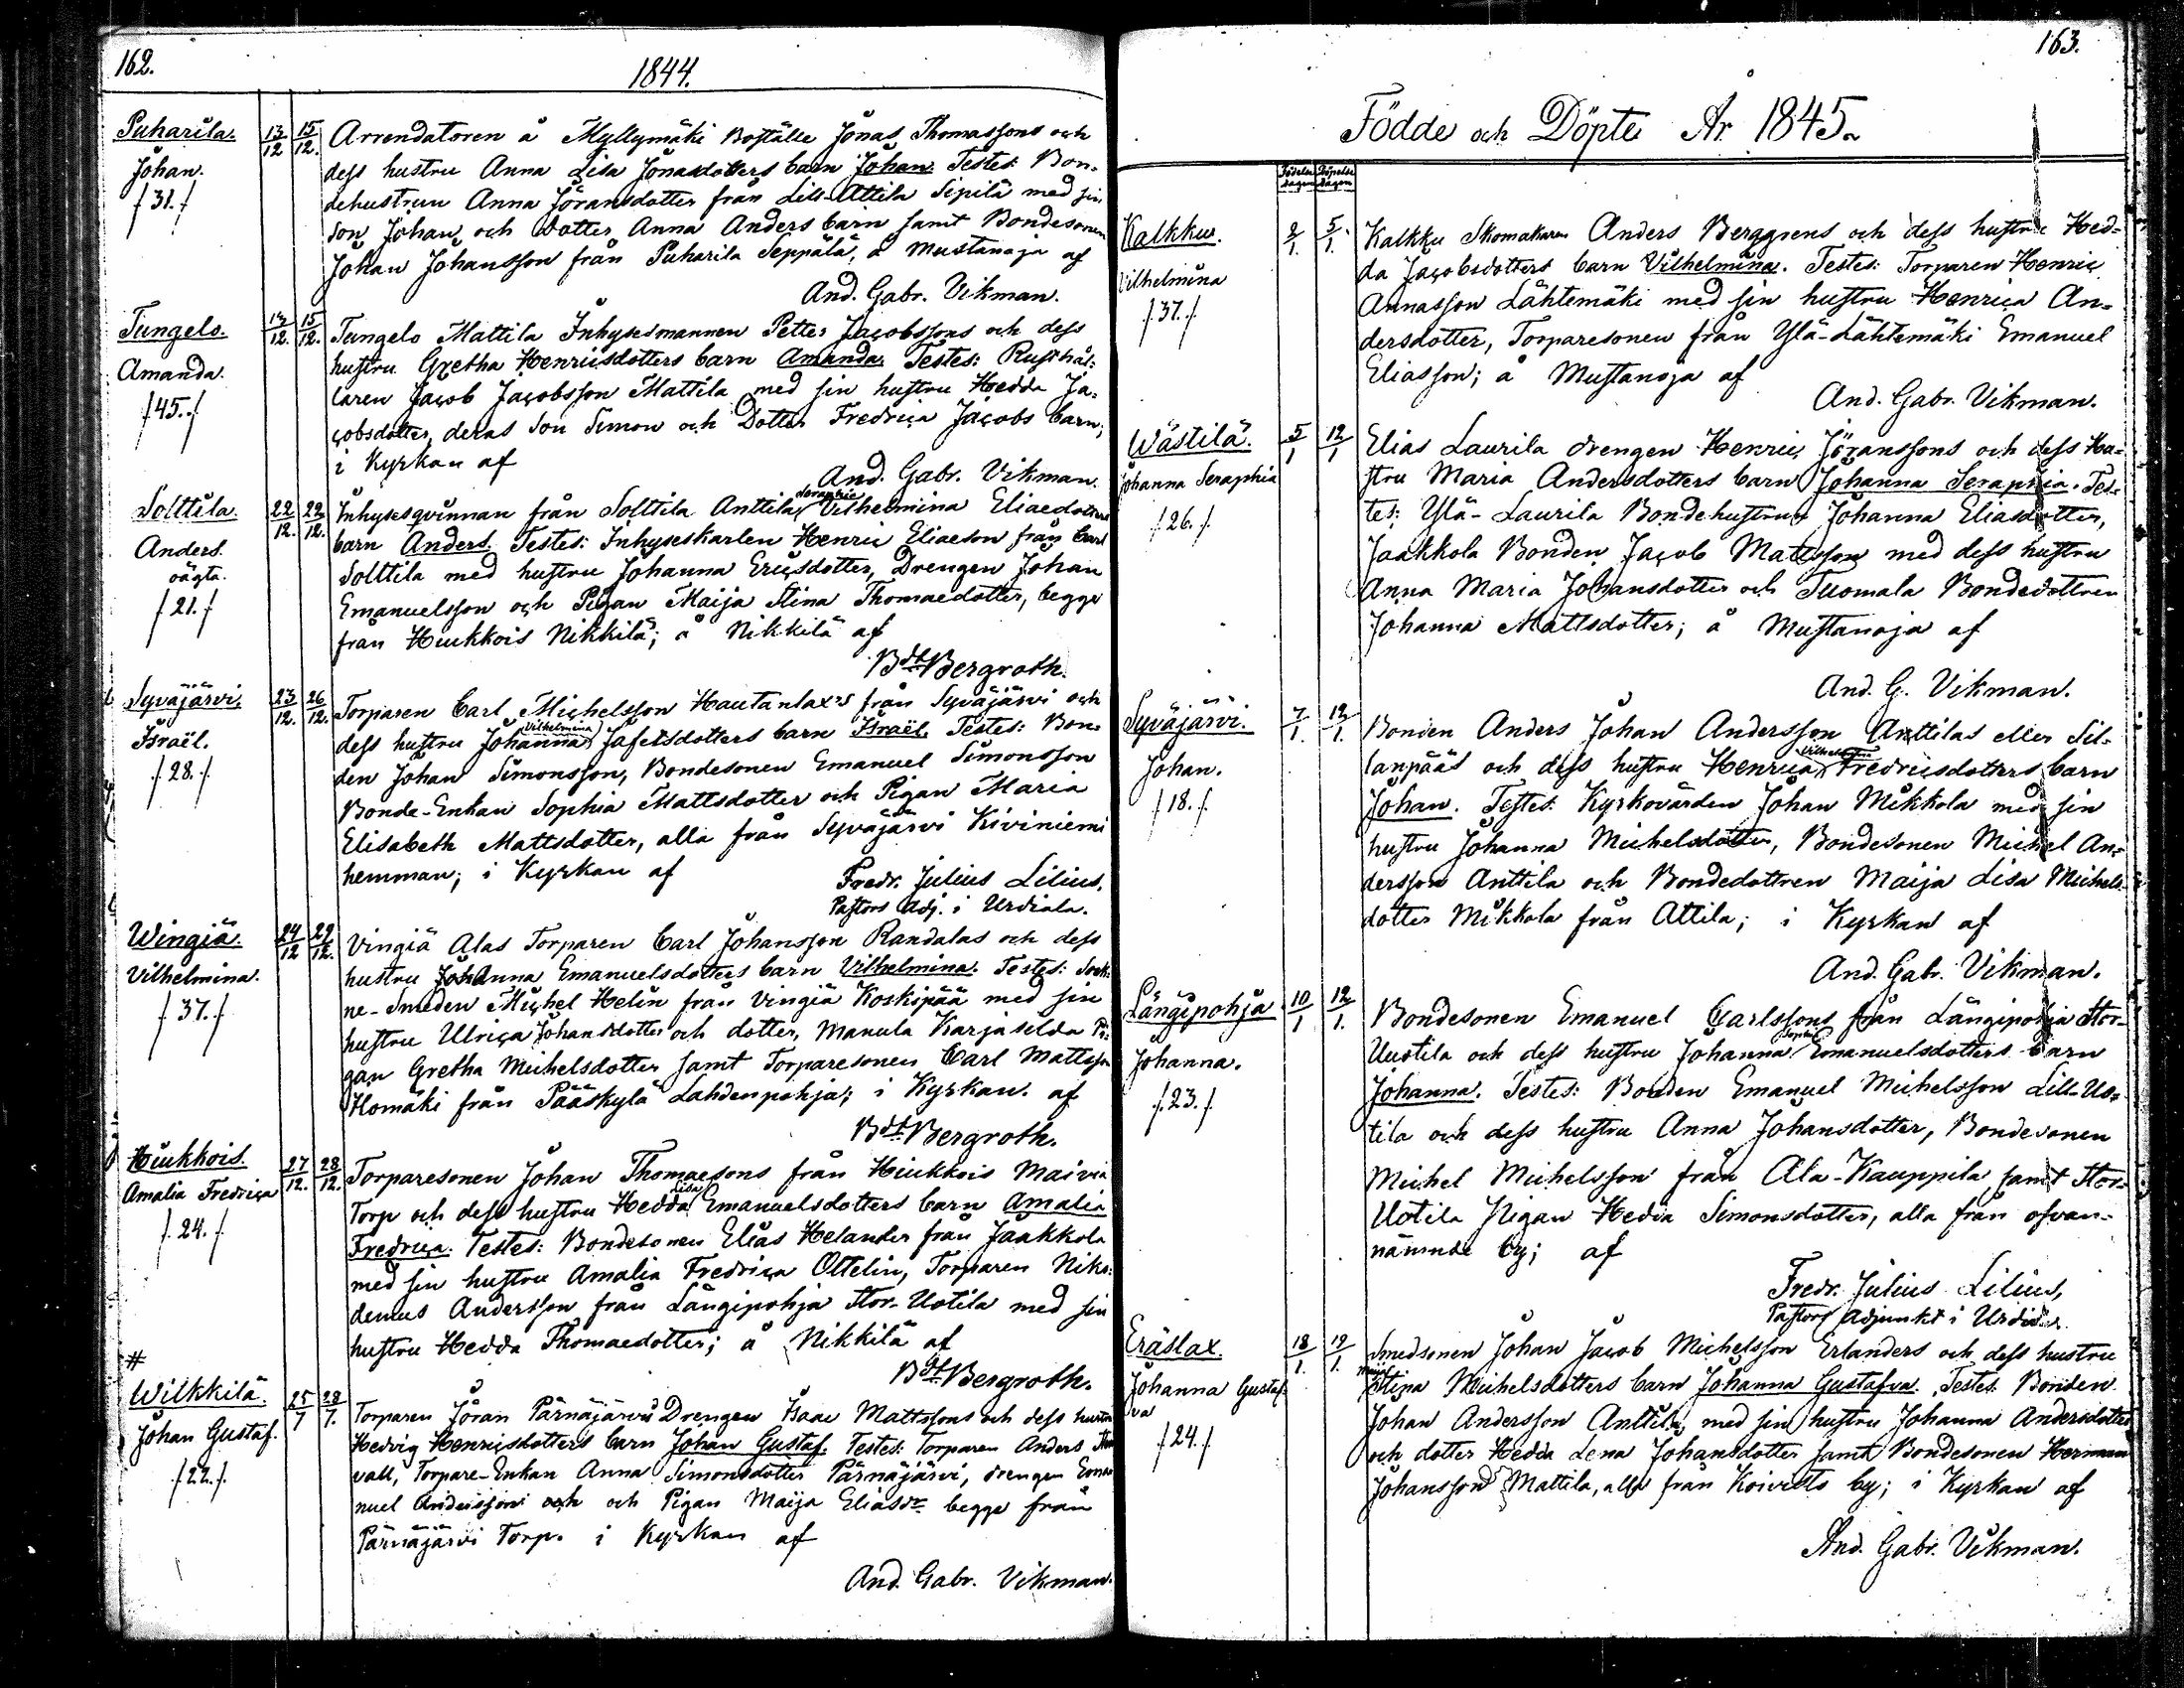 162.
1844.
Puharila.
Johan.
/31./
13/12
15/12.
Arrendatoren å Myllymäki Boställe Jonas Thomassons och
dess hustru Anna Lisa Jonasdotters barn Johan. Testes: Bon-
dehustrun Anna Jöransdotter från Lill-Attila Sipilä med sin
son Johan och dotter Anna Anders barn samt Bondesonen
Johan Johansson från Puharila Seppälä, å Mustanoja af
And. Gabr. Vikman.
Tungelo.
Amanda.
/45./
13/12.
15/12.
Tungelo Mattila Inhysesmannen Petter Jacobssons och dess
hustru Gretha Henricsdotters barn Amanda. Testes: Rusthål-
laren Jacob Jacobsson Mattila med sin hustru Hedda Ja-
cobsdotter, deras Son Simon och Dotter Fredrica Jacobs barn;
i Kyrkan af
And. Gabr. Vikman.
Solttila.
Anders.
oägta.
/21./
22/12.
22/12.
Inhysesqvinnan från Solttila Anttila Seraphia Vilhelmina Eliaedotters
barn Anders. Testes: Inhyseskarlen Henric Eliaeson från Carl
Solttila med hustru Johanna Ericsdotter, Drengen Johan
Emanuelsson och Pigan Maija Stina Thomaedotter, begge
från Huukkois Nikkilä; å Nikkilä af
Bdt Bergroth.
Syväjärvi.
Israël.
/28./
23/12.
26/12.
Torparen Carl Michelsson Hautanlax's från Syväjärvi och
dess hustru Johanna Vilhelmina Jafetsdotters barn Israël. Testes: Bon-
den Johan Simonsson, Bondesonen Emanuel Simonsson
Bonde-Enkan Sophia Mattsdotter och Pigan Maria
Elisabeth Mattsdotter, alla från Syväjärvi Kiviniemi
hemman; i Kyrkan af
Fredr. Julius Lilius,
Pastors Adj. i Urdiala.
Wingiä.
Vilhelmina.
/37./
24/12
29/12.
Vingiä Alas Torparen Carl Johansson Randalas och dess
hustru Johanna Emanuelsdotters barn Vilhelmina. Testes: Sock-
ne-Smeden Michel Helin från Vingiä Koskipää med sin
hustru Ulrica Johansdotter och dotter, Manula Karjaselda Pi-
gan Gretha Michelsdotter samt Torparesonen Carl Mattsson
Homäki från Pääskylä Lahdenpohja; i Kyrkan. af
Bdt Bergroth.
Huukkois.
Amalia Fredrica
/24./
27/12.
28/12.
Torparesonen Johan Thomaesons från Huukkois Maivia
Torp och dess hustru Hedda Lisa Emanuelsdotters barn Amalia
Fredrica. Testes: Bondesonen Elias Helander från Jaakkola
med sin hustru Amalia Fredrica Ottelin, Torparen Niko-
demus Andersson från Långipohja Stor-Uotila med sin
hustru Hedda Thomaedotter; å Nikkilä af
Bdt Bergroth.
#
Wilkkilä.
Johan Gustaf.
/22./
25/7
28/7.
Torparen Jöran Pärnäjärvis Drengen Isaac Mattssons och dess hustru
Hedvig Henricsdotters barn Johan Gustaf. Testes: Torparen Anders
vall, Torpare-Enkan Anna Simonsdotter Pärnäjärvi, drengen Ema-
nuel Andersson och och Pigan Maija Eliasdr begge från
Pärnäjärvi Torp. i Kyrkan af
And. Gabr. Vikman.
163.
Födde och Döpte År 1845.
Födelse dagen
Döpelse dagen
Kalkku.
Vilhelmina
/37./
2/1.
5/1.
Kalkku Skomakaren Anders Berggrens och dess hustru Hed-
da Jacobsdotters barn Vilhelmina. Testes: Torparen Henric
Annasson Lähtemäki med sin hustru Henrica An-
dersdotter, Torparesonen från Ylä-Lähtemäki Emanuel
Eliasson; å Mustanoja af
And. Gabr. Vikman.
Wästilä.
Johanna Seraphia
/26./
5/1
12/1
Elias Laurila drengen Henric Jöranssons och dess Hu-
stru Maria Andersdotters barn Johanna Seraphia. Tes-
tes: Ylä-Laurila Bondehustrun Johanna Eliasdotter,
Jaakkola Bonden Jacob Mattsson med dess hustru
Anna Maria Johansdotter och Tuomala Bondedottren
Johanna Mattsdotter; å Mustanoja af
And. G. Vikman.
Syväjärvi.
Johan.
/18./
7/1.
12/1.
Bonden Anders Johan Andersson Anttilas eller Sil-
lanpääs och dess hustru Henrica Vilhelmina Fredricsdotters barn
Johan. Testes: Kyrkovärden Johan Mikkola med sin
hustru Johanna Michelsdotter, Bondesonen Michel An-
dersson Anttila och Bondedottren Maija Lisa Michels-
dotter Mikkola från Attila; i Kyrkan af
And. Gabr. Vikman.
Långipohja
Johanna.
/23./
10/1
12/1.
Bondesonen Emanuel Carlssons från Långipohja Stor-
Uuotila och dess hustru Johanna Sophia Emanuelsdotters barn
Johanna. Testes: Bonden Emanuel Michelsson Lill-Uo-
tila och dess hustru Anna Johansdotter, Bondesonen
Michel Michelsson från Ala-Kauppila samt Stor-
Uotila Pigan Hedda Simonsdotter, alla från ofvan-
nämnde by; af
Fredr. Julius Lilius,
Pastors Adjunkt i Urdiala.
Eräslax.
Johanna Gustaf-
va
/24./
18/1.
19/1.
Smedsonen Johan Jacob Michelsson Erlanders och dess hustru
Maija Stina Michelsdotters barn Johanna Gustafva. Testes. Bonden
Johan Andersson Anttila, med sin hustru Johanna Andersdotter
och dotter Hedda Lena Johansdotter samt Bondesonen Herman
Johansson Mattila, alla från Koivisto by; i Kyrkan af
And. Gabr. Vikman.